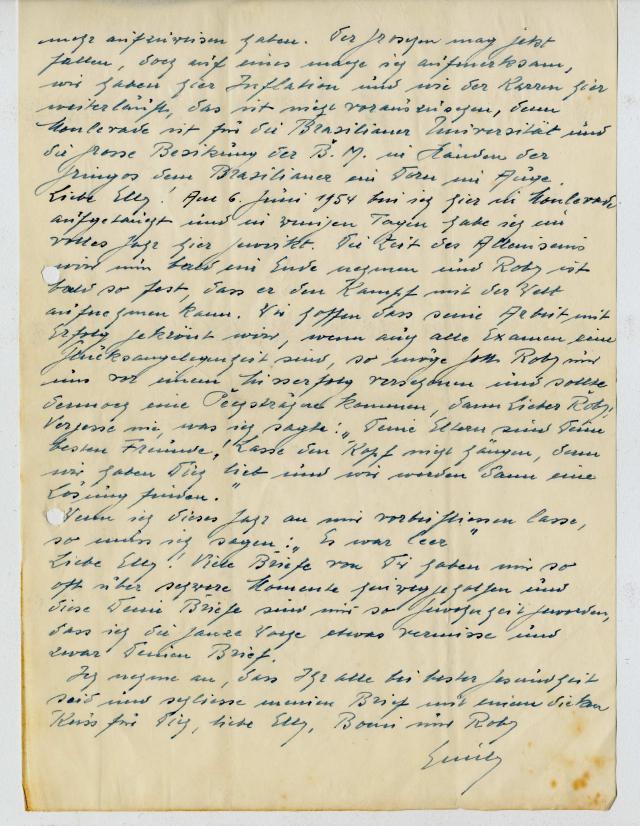 mehr aufzuweisen haben. Der Groschen mag jetzt
fallen, doch auf eines mache ich aufmerksam,
wir haben hier Inflation und wie der Karren hier
weiterläuft, das ist nicht vorauszusehen, denn
Monlevade ist für die Brasilianer Universität und
die grosse Besitzung der B. M. in Händen der
Gringos dem Brasilianer ein Dorn im Auge.
Liebe Elly! Am 6. Juni 1954 bin ich hier in Monlevade
aufgetaucht und in wenigen Tagen habe ich ein
volles Jahr hier gewirkt. Die Zeit des Alleinseins
wird nun bald ein Ende nehmen und Roby ist
bald so fest, dass er den Kampf mit der Welt
aufnehmen kann. Wir hoffen dass seine Arbeit mit
Erfolg gekrönt wird, wenn auch alle Examen eine
Glücksangelegenheit sind, so möge Gott Roby und
uns vor einem Misserfolg verschonen und sollte
dennoch eine Pechsträhne kommen, dann lieber Roby!
Vergesse nie, was ich sagte: „Deine Eltern sind Deine
besten Freunde! Lasse den Kopf nicht hängen, denn
wir haben Dich lieb und wir werden dann eine
Lösung finden."
Wenn ich dieses Jahr an mir vorbeifliessen lasse,
so muss ich sagen: „Es war leer"
Liebe Elly! Viele Briefe von Dir haben mir so
oft über schwere Momente hinweggeholfen und
diese Deine Briefe sind mir so Gewohnheit geworden,
dass ich die ganze Woche etwas vermisse und
zwar Deinen Brief.
Ich nehme an, dass Ihr alle bei bester Gesundheit
seid und schliesse meinen Brief mit einem dicken
Kuss für Dich, liebe Elly, Bomi und Roby